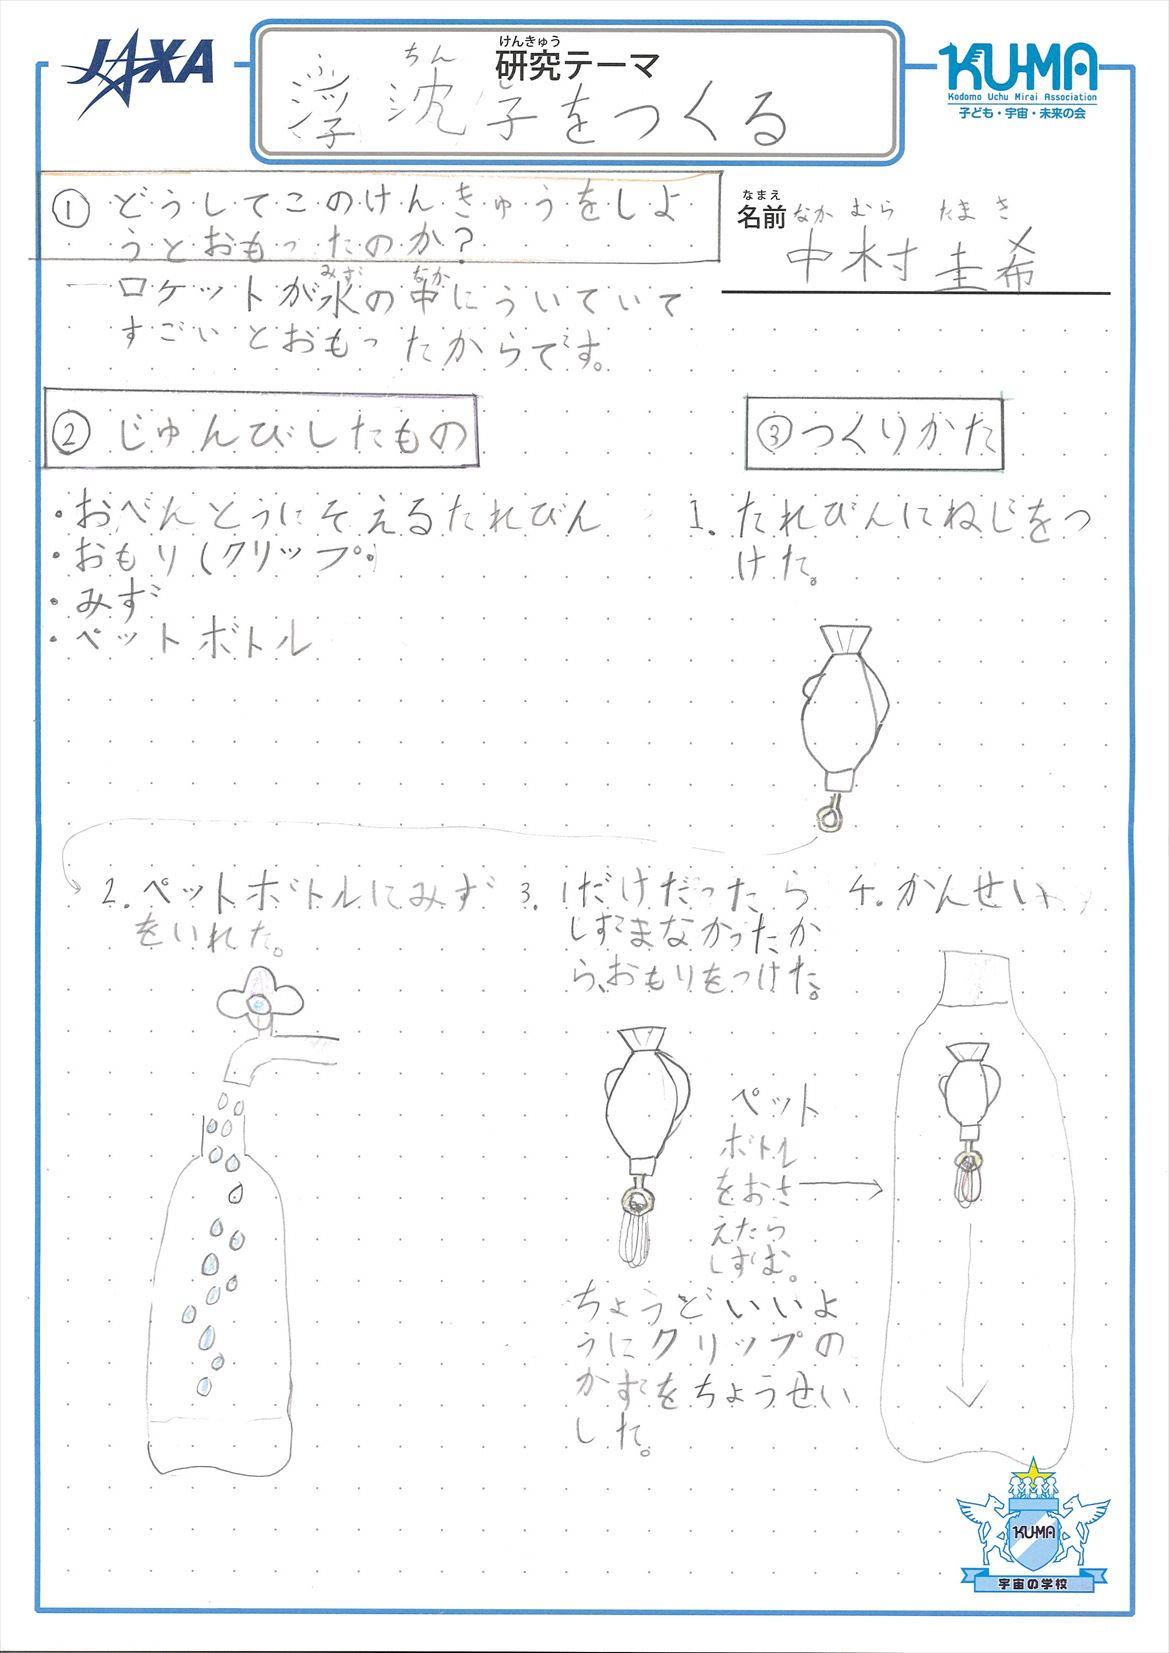 JAXA
けんきゅう
研究テーマ
ふ ちん し
浮沈子をつくる
KU-MA
Kodomo Uchu Mirai Association
子ども・宇宙・未来の会
なまえ
名前
なか むら たま き
中村 圭希
①どうしてこのけんきゅうをしよ
うとおもったのか?
みず なか
ロケットが水の中にういていて
すごいとおもったからです。
②じゅんびしたもの
・おべんとうにそえるたれびん
・おもり(クリップ)
・みず
・ペットボトル
③つくりかた
1.たれびんにねじをつ
けた。
2.ペットボトルにみず
をいれた。
3.1だけだったら
しずまなかったか
ら、おもりをつけた。
ちょうどいいよ
うにクリップの
かずをちょうせい
した。
4.かんせい
ペット
ボトル
をおさ
えたら
しずむ。
KU-MA
宇宙の学校